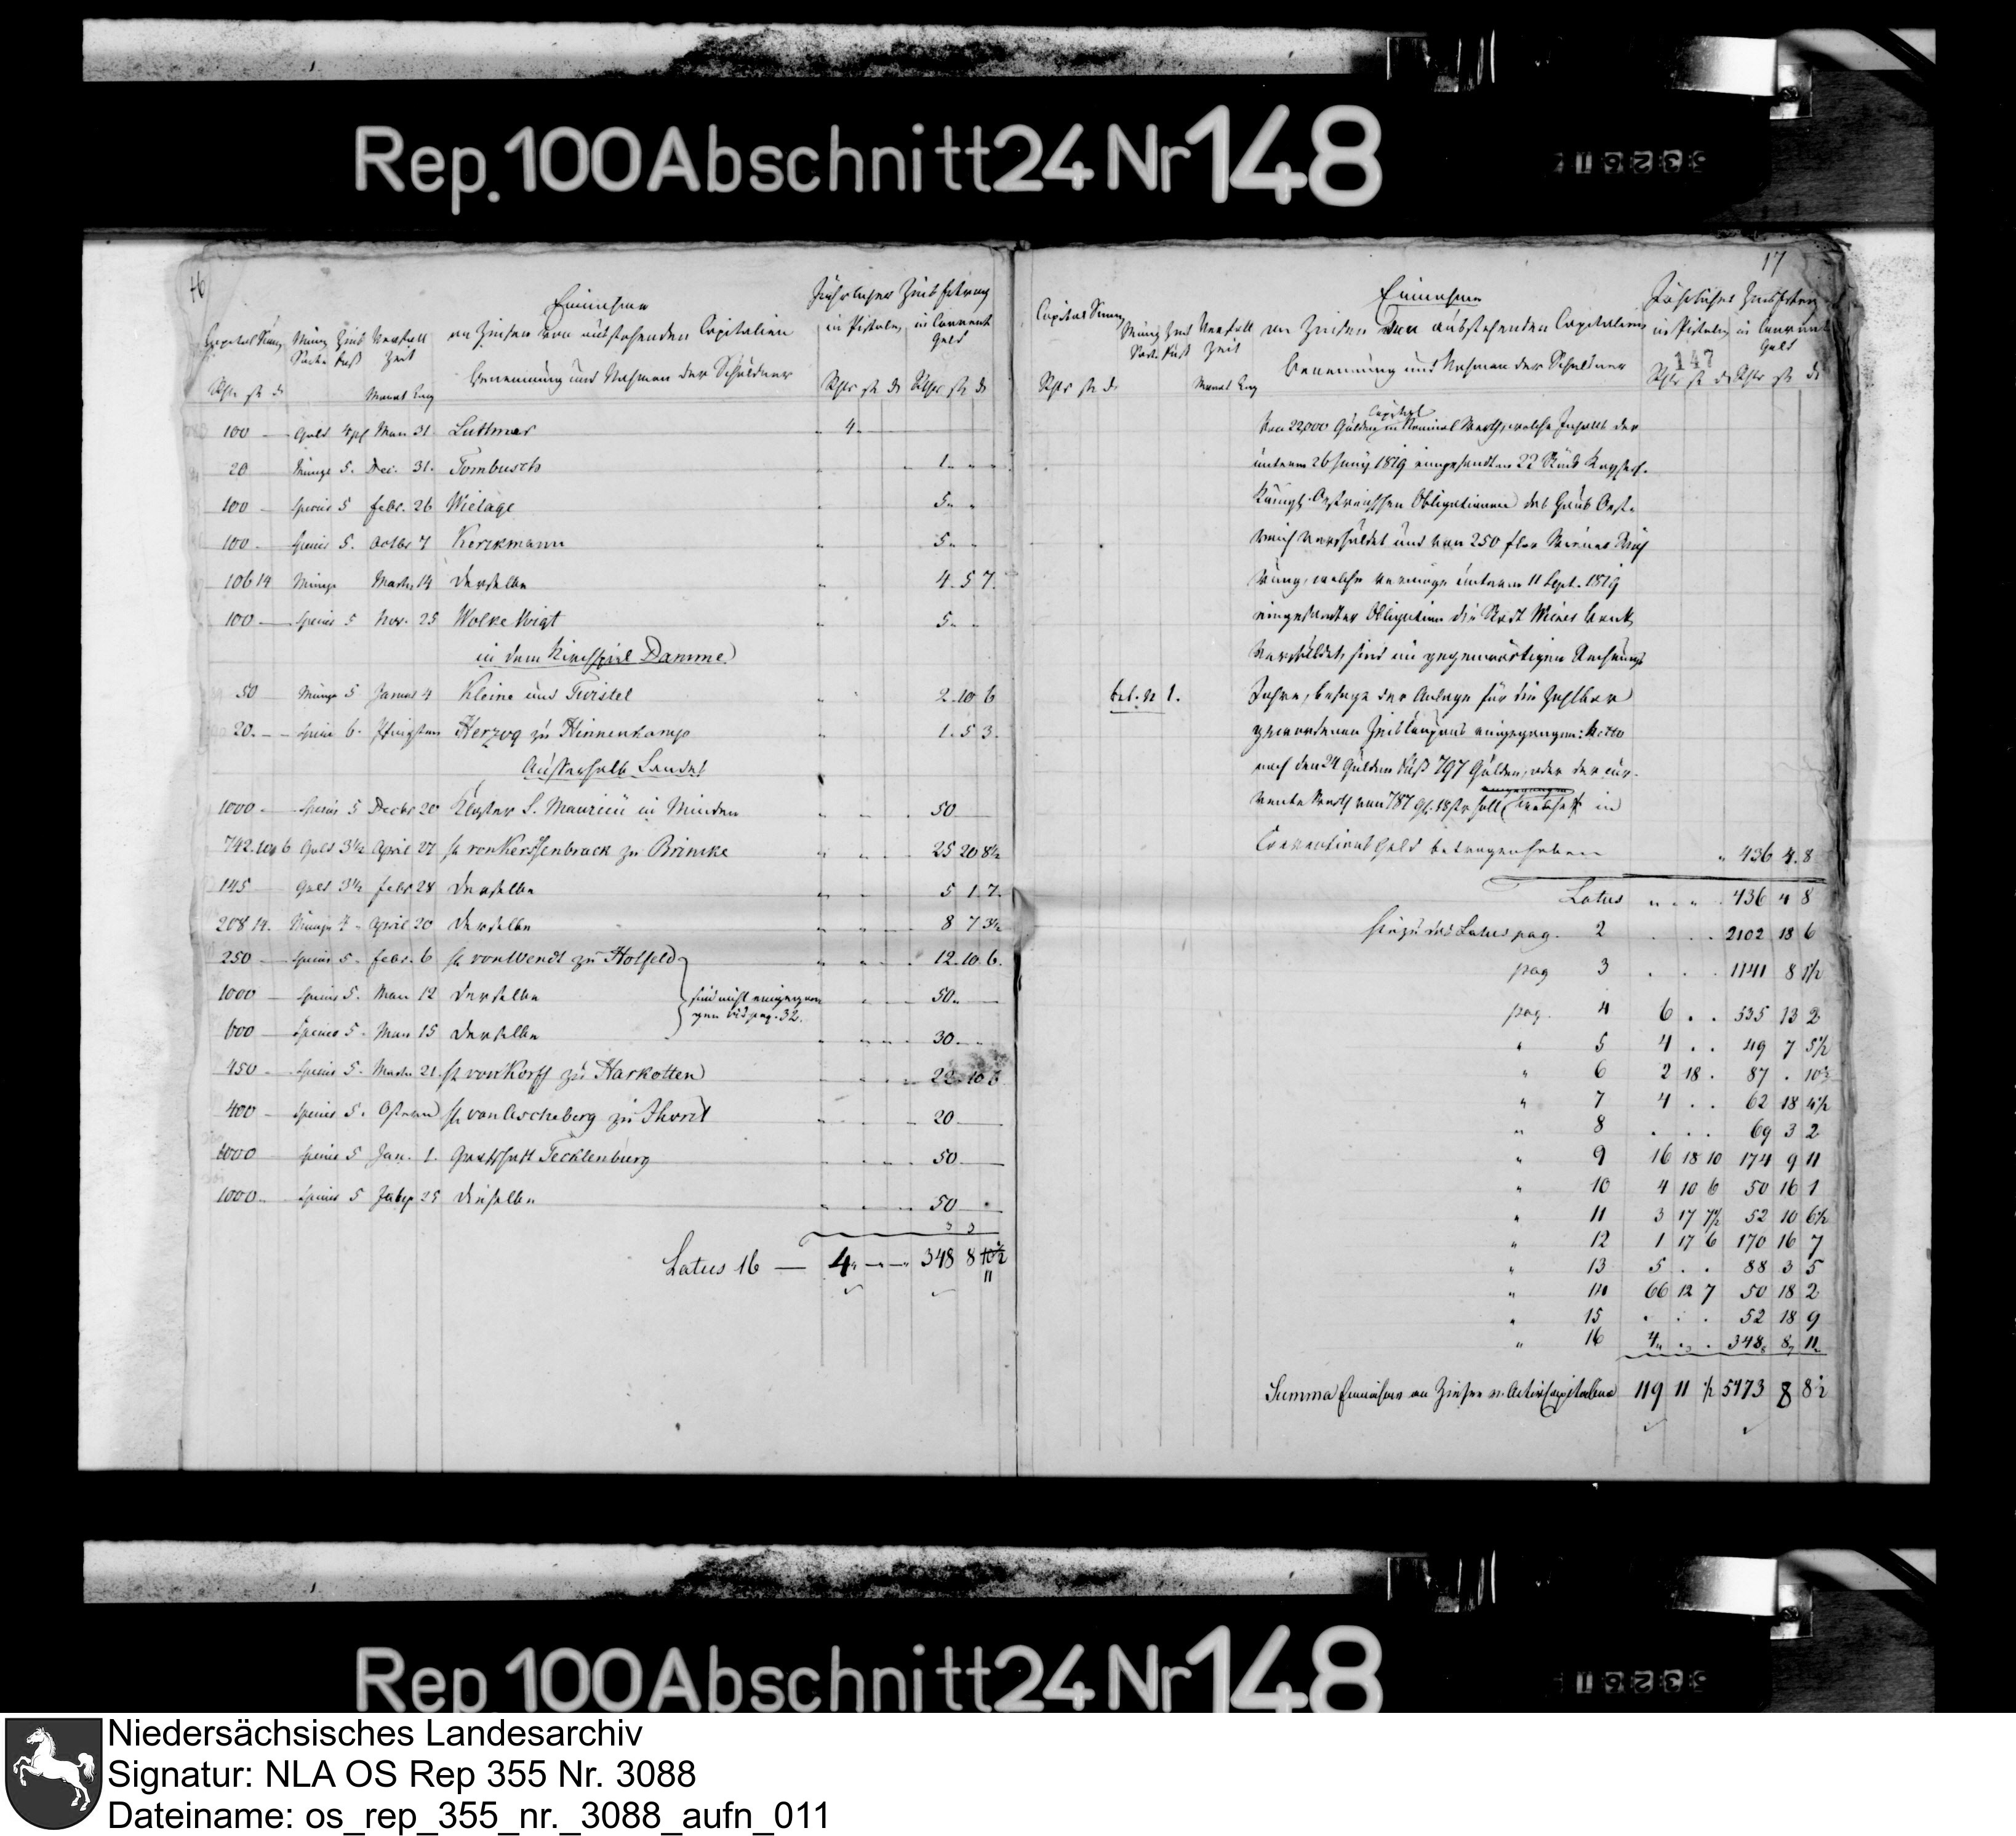 Rep. 100 Abschnitt 24 Nr 148
16
Einnahme
an Zinsen von ausstehenden Capitalien
Benennung und Nahmen der Schuldner
Capital Summ
Münz Sorte
Zins Fuß
Verfall Zeit
Monat Tag
Jährlicher Zinsbetrag
in Pistolen
in Courant Geld
Rthr ß d Rthr ß d
100 Gold 4 pC Man 31. Luttmer 4
20 Münze 5. Dec. 31. Tombusch 1
100 Specie 5 febr. 26 Wielage 5
100 Specie 5. Octbr 7 Kerckmann 5
106 14 Münze Marty 14 Derselbe 4. 5 7.
100 Specie 5 Nov. 25 Wolke Voigt 5
in dem Kirchspiel Damme
50 Münze 5 Januar 4 Kleine und Twistel 2. 10 6
20. Specie 6. Pfingsten Herzog zu Hinnenkamp 1. 5 3.
Ausserhalb Landes
1000 Specie 5 Decbr 20 Kloster S. Mauricii in Minden 50
742. 10 6 Gold 3½ April 27 H von Kerssenbrock zu Brincke 25 20 8½
145 Gold 3½ febr 28 Derselbe 5 1 7.
208 14. Münze 4 April 20 Derselbe 8 7 3½
250 Specie 5. febr. 6 H von Wendt zu Holtfeld 12. 10. 6.
1000 Specie 5. Man 12 Derselbe 50.
sind nicht eingegan
gen vid pag. 32.
600 Specie 5. Man 15 Derselbe 30.
450 Specie 5. Marty 21. H von Korff zu Harkotten 22. 10 6
400 Specie 5. Ostern H von Ascheberg zu Ihorst 20
1000 Specie 5 Jan. 1. Grafschaft Tecklenburg 50
1000 Specie 5 25 Dieselbe 50
Latus 16 — 4 348 8 10½
11
17
Einnahme
an Zinsen von ausstehenden Capitalien
Benennung und Nahmen der Schuldner
Capital Summ
Münz Sorte
Zins Fuß
Verfall Zeit
Monat Tag
Jährlicher Zinsbetrag
in Pistolen
in Courant Geld
147
Rthr ß d Rthr ß d
Capital
Von 22,000 Gulden im Nominal Werth, welche Inhalts der
unterm 26 Juny 1819 eingesandten 22 Stück Kayserl.
Königl. Oestreichschen Obligationen das Haus Oest-
reich verschuldet und von 250 flor Wiener
welche vermöge unterm 11 Sept. 1819
eingesandter Obligation die Stadt Wiener Bank
verschuldet, sind im gegenwärtigen Rechnungs
Bel. N 1. Jahre, besage der Anlage für die zahlbar
gewordenen Zins Coupons eingegangen: Netto
nach dem 24 Gulden Fuß 797 Gulden, oder der cur-
rente Werth von 787 Gl. 18 in
Conventions Geld betragen haben 436 4. 8
Latus 436 4 8
Hinzu das Latus pag. 2 2102 18 6
pag 3 1141 8 1½
pag. 4 6 . . 535 13 2
" 5 4 . . 49 7 5½
" 6 2 18 . 87 . 10½
" 7 4 . . 62 18 4½
" 8 . . . 69 3 2
" 9 16 18 10 174 9 11
" 10 4 10 6 50 16 1
" 11 3 17 7½ 52 10 6½
" 12 1 17 6 170 16 7
" 13 5 . . 88 3 5
" 14 66 12 7 50 18 2
" 15 . . . 52 18 9
" 16 4 . . 348 8 11
Summa Einnahme an Zinsen v. Activ Capitalien 119 11 ½ 5473 8 8½
Rep 100 Abschnitt 24 Nr 148
Niedersächsisches Landesarchiv
Signatur: NLA OS Rep 355 Nr. 3088
Dateiname: os_rep_355_nr._3088_aufn_011